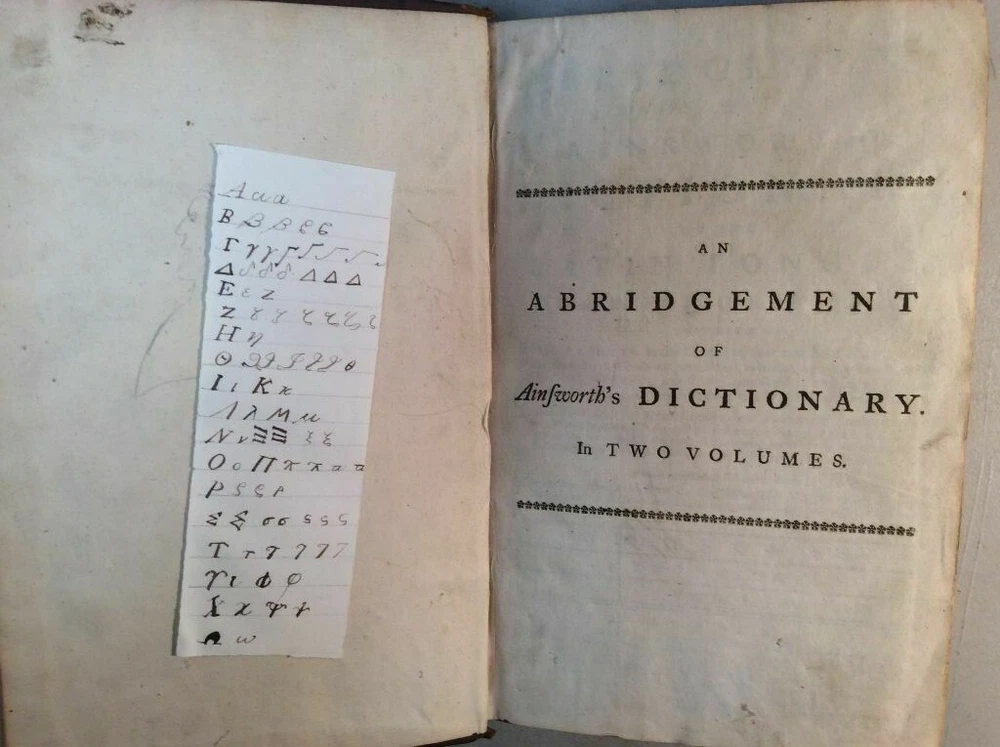 Α α α
Β β β ϐ ϐ
Γ γ γ Γ Γ Γ Γ
Δ δ δ δ Δ Δ Δ
Ε ε Z
Ζ ζ ζ ζ ζ ζ ζ
Η η
Θ ϑ ϑ ϑ ϑ ϑ θ
Ι ι Κ κ
Λ λ Μ μ
Ν ν Ξ Ξ ξ ξ
Ο ο Π π π
Ρ ρ
Σ Σ σ σ ς ς ς
Τ τ Τ 7 7 7
Υ ι Φ φ
Χ χ Ψ ψ
Ω ω
AN
ABRIDGEMENT
OF
Ainſworth's DICTIONARY.
In TWO VOLUMES.